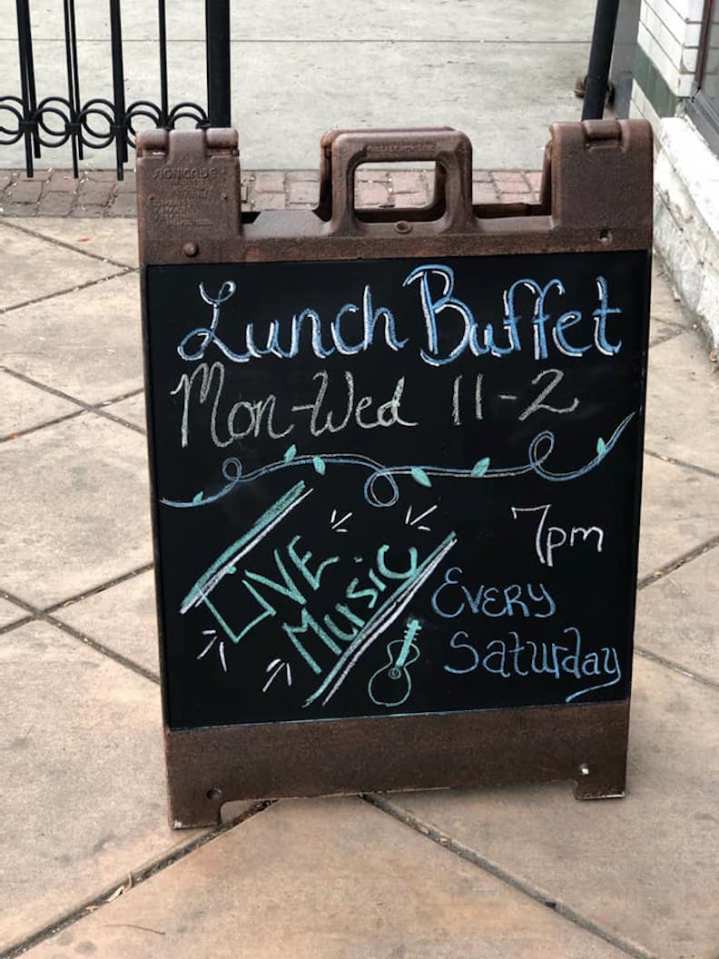 SIGNICADE
Lunch Buffet
Mon-Wed 11-2
7pm
LIVE
Music
EVERY
Saturday